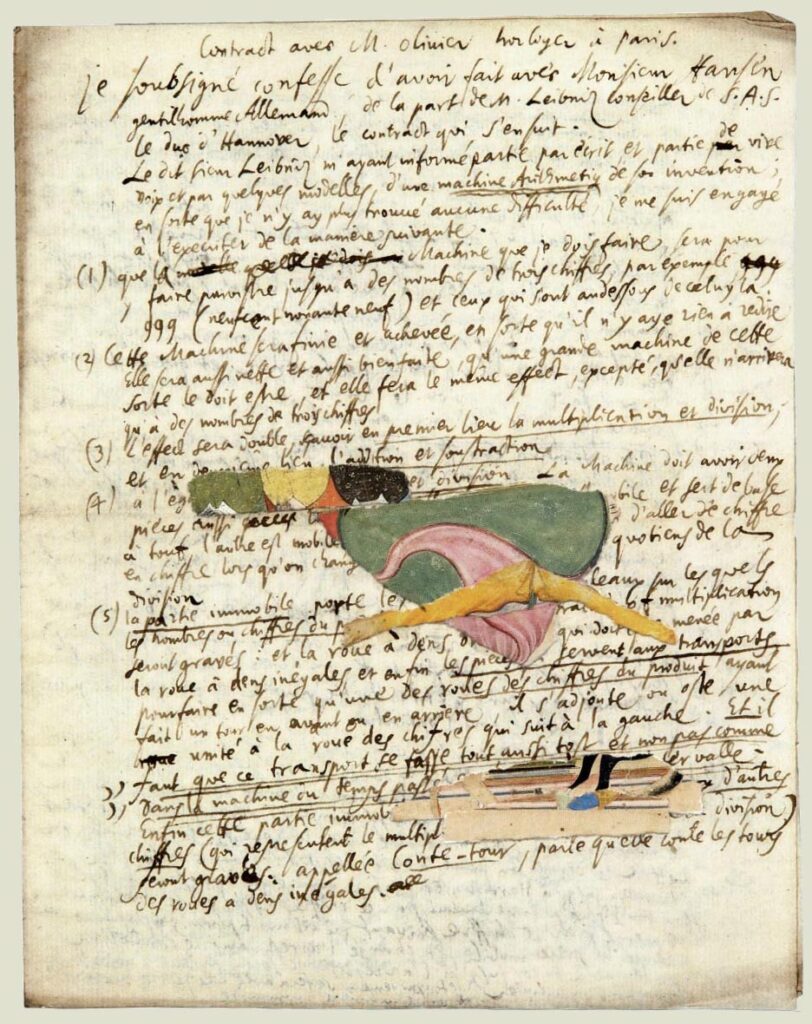 Contract avec M. Olivier horloger à paris.
je soubsigné confesse d'avoir fait avec Monsieur Hansen
gentilhomme Allemand, de la part de M. Leibniz conseiller de S.A.S.
le duc d'Hannover, le contract qui s'ensuit.
Le dit sieur Leibniz m'ayant informé partie par écrit et partie de vive
voix et par quelques modelles, d'une machine Arithmetiq de son invention;
en sorte que je n'y ay plus trouué aucune difficulté, je me suis engagé
à l'executer de la maniere suivante.
(1) que la Machine que je dois faire, sera pour
faire paroistre jusqu'a des nombres de trois chiffres, par exemple
999 (neufcent nonante neuf) et ceux qui sont audessous de celuy la.
(2) Cette Machine sera finie et achevée, en sorte qu'il n'y aye rien à redire
Elle sera aussi nette et aussi bienfaite, qu'une grande machine de cette
sorte le doit estre, et elle fera le même effect, excepté, qu'elle n'arrivera
qu'a des nombres de trois chiffres
(3) L'effect sera double, sçavoir en premier lieu la multiplication et division;
et en lieu l'addition et soustraction
(4) à l' et division La Machine doit avoir deux
pièces aussi mobile et sert de base
à tout, l'autre est mobile d'aller de chiffre
en chiffre lors qu'on quotiens de la
division
(5) la partie immobile porte les leaux sur les quels
les nombres ou chiffres du multiplication
seront gravés: et la roue à dens qui doit menée par
la roue à dens inégales et enfin les pieces servent aux transports
pour faire en sorte qu'une des roues des chiffres du produit ayant
fait un tour en avant ou en arriere il s'adjoute ou oste une
unité à la roue des chifres qui suit à la gauche. Et il
faut que ce transport se fasse tout aussi tost et non pas comme
dans la machine du temps passé ervalle.
Enfin cette partie immob d'autres
chiffres (qui representent le multipl division)
seront gravés: appellée Conte-tour, parce que conte les tours
des roues a dens inégales.